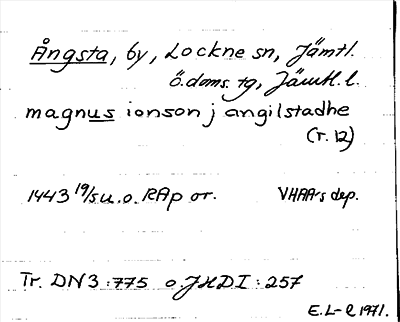 Ångsta, by, Lockne sn, Jämtl.
Ö.doms. tg, Jämtl. l.
magnus ionson j angilstadhe
(r. 12)
1443 19/5 u.o. RAp or. VHAA:s dep.
Tr. DN3:775 o. JHDI:257
E.L-Q 1971.